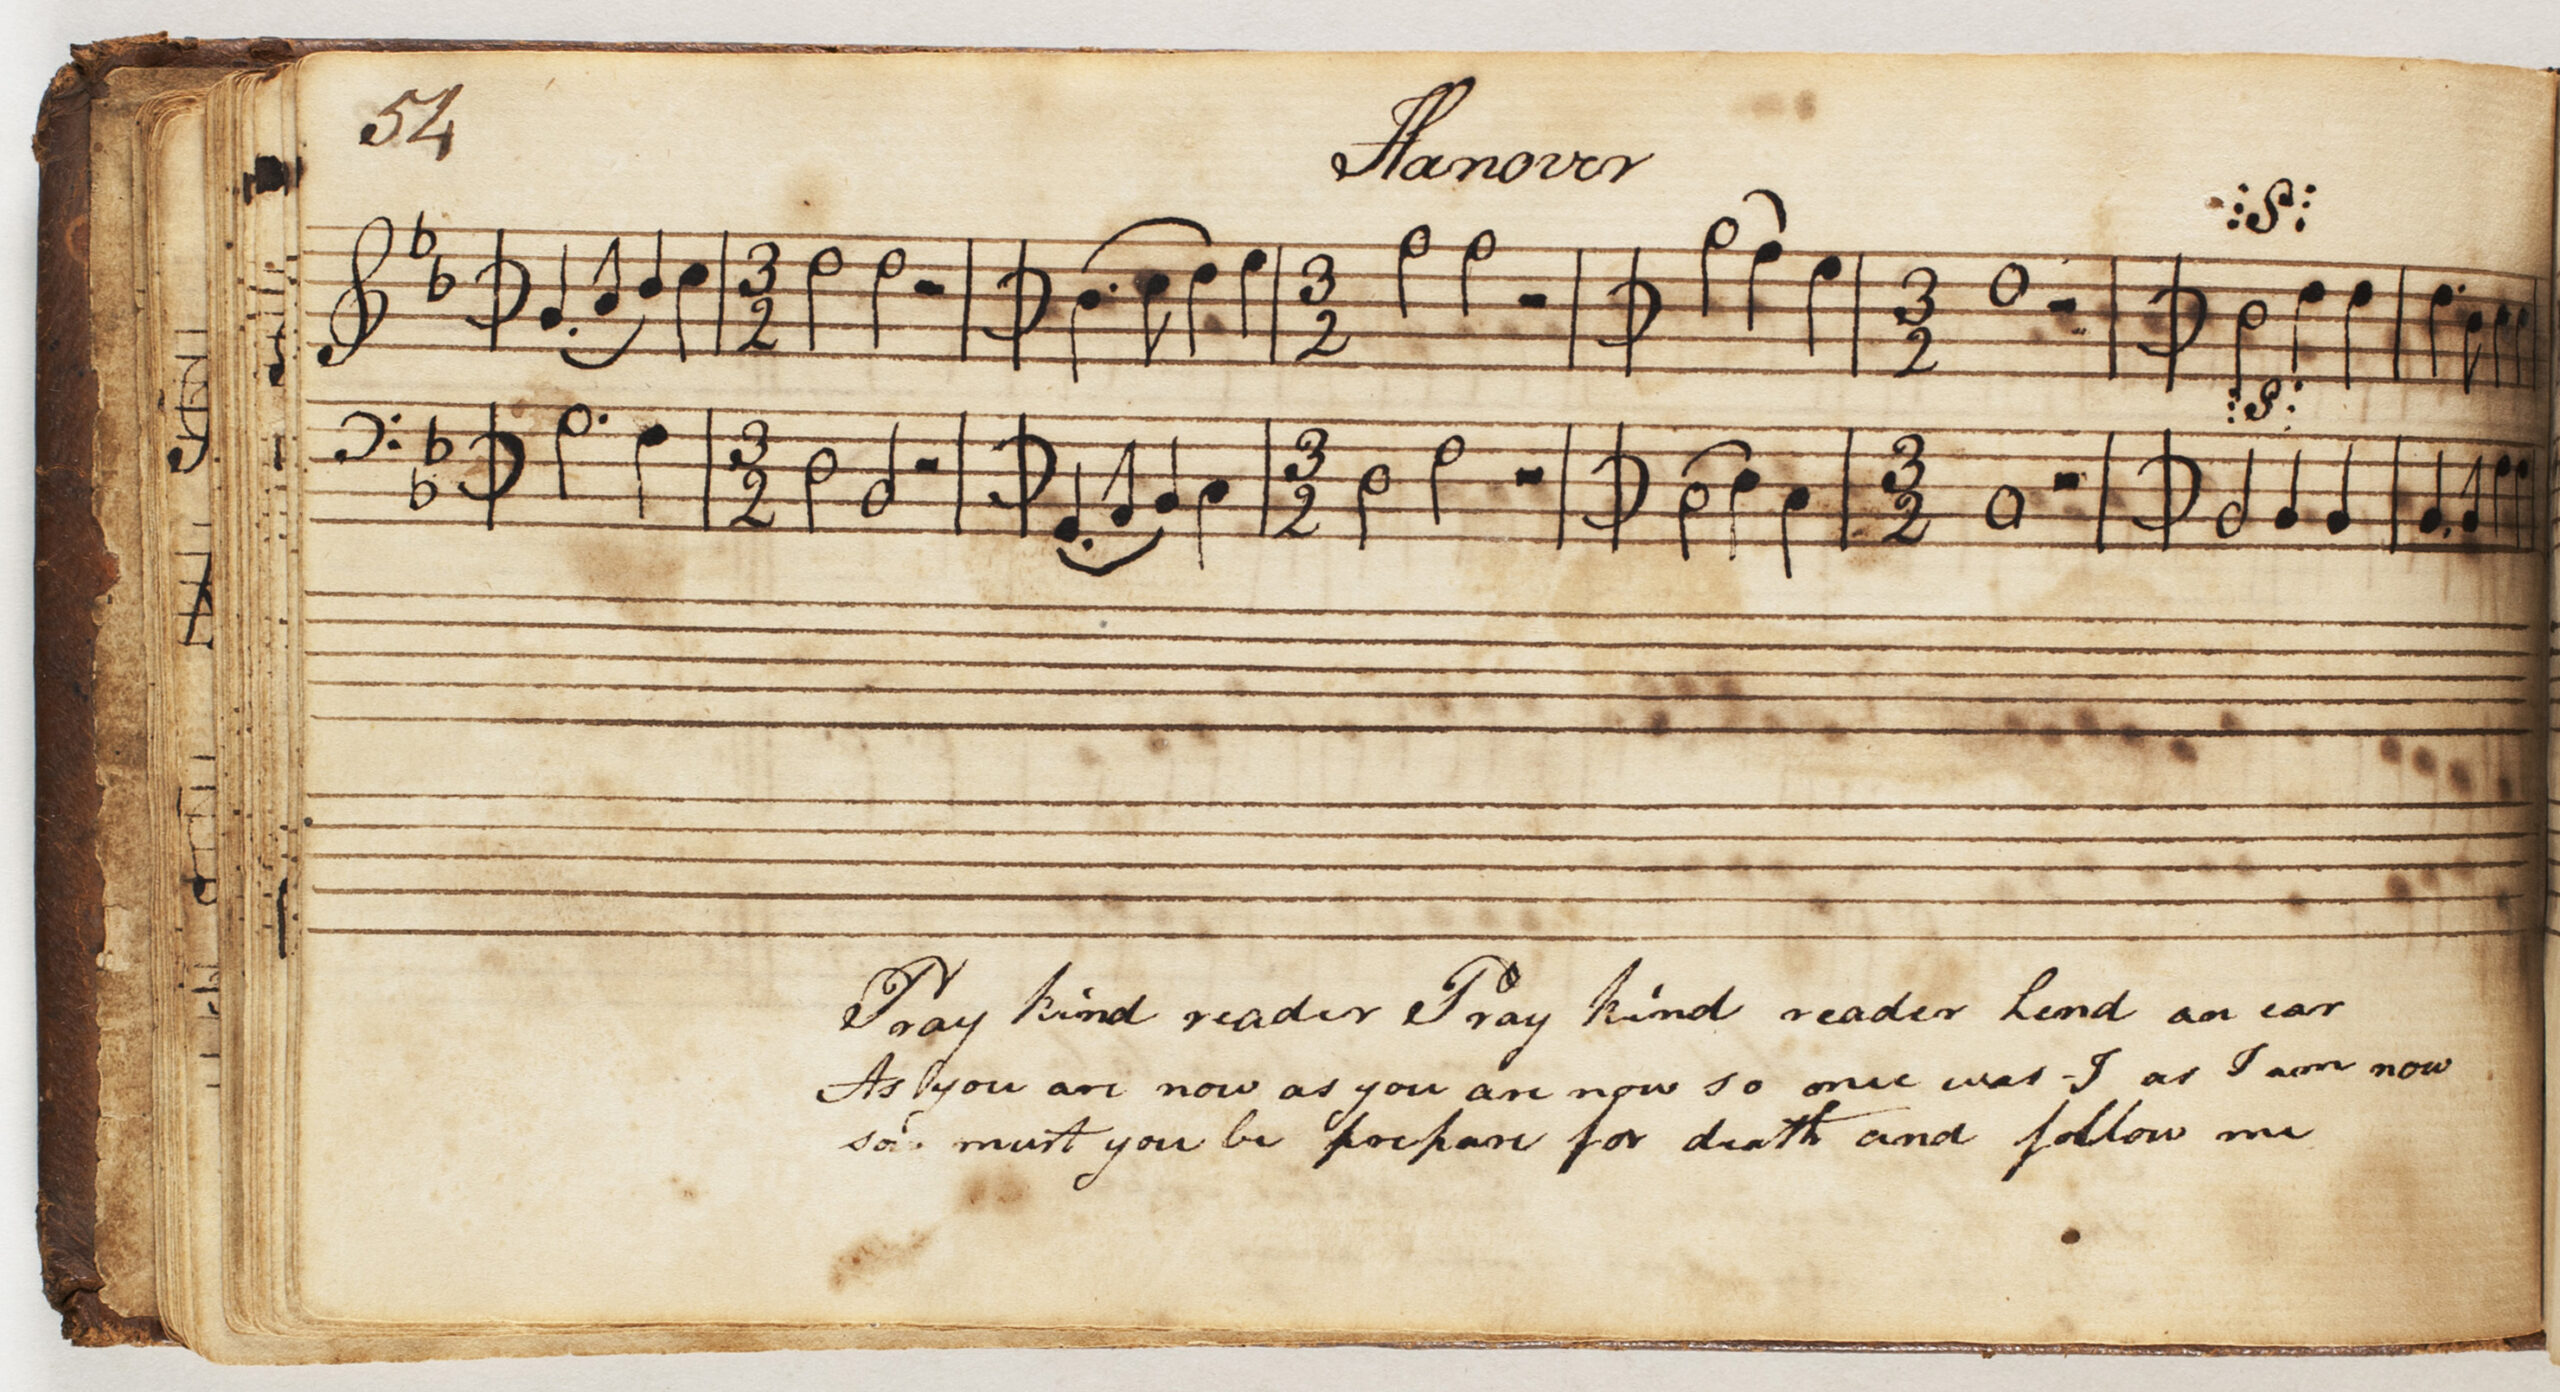 54
Hanover
:S:
3 2 3 2 3 2
:S:
3 2 3 2 3 2
Pray kind reader Pray kind reader Lend an ear
As you are now as you are now so once was I as I am now
so must you be prepare for death and follow me